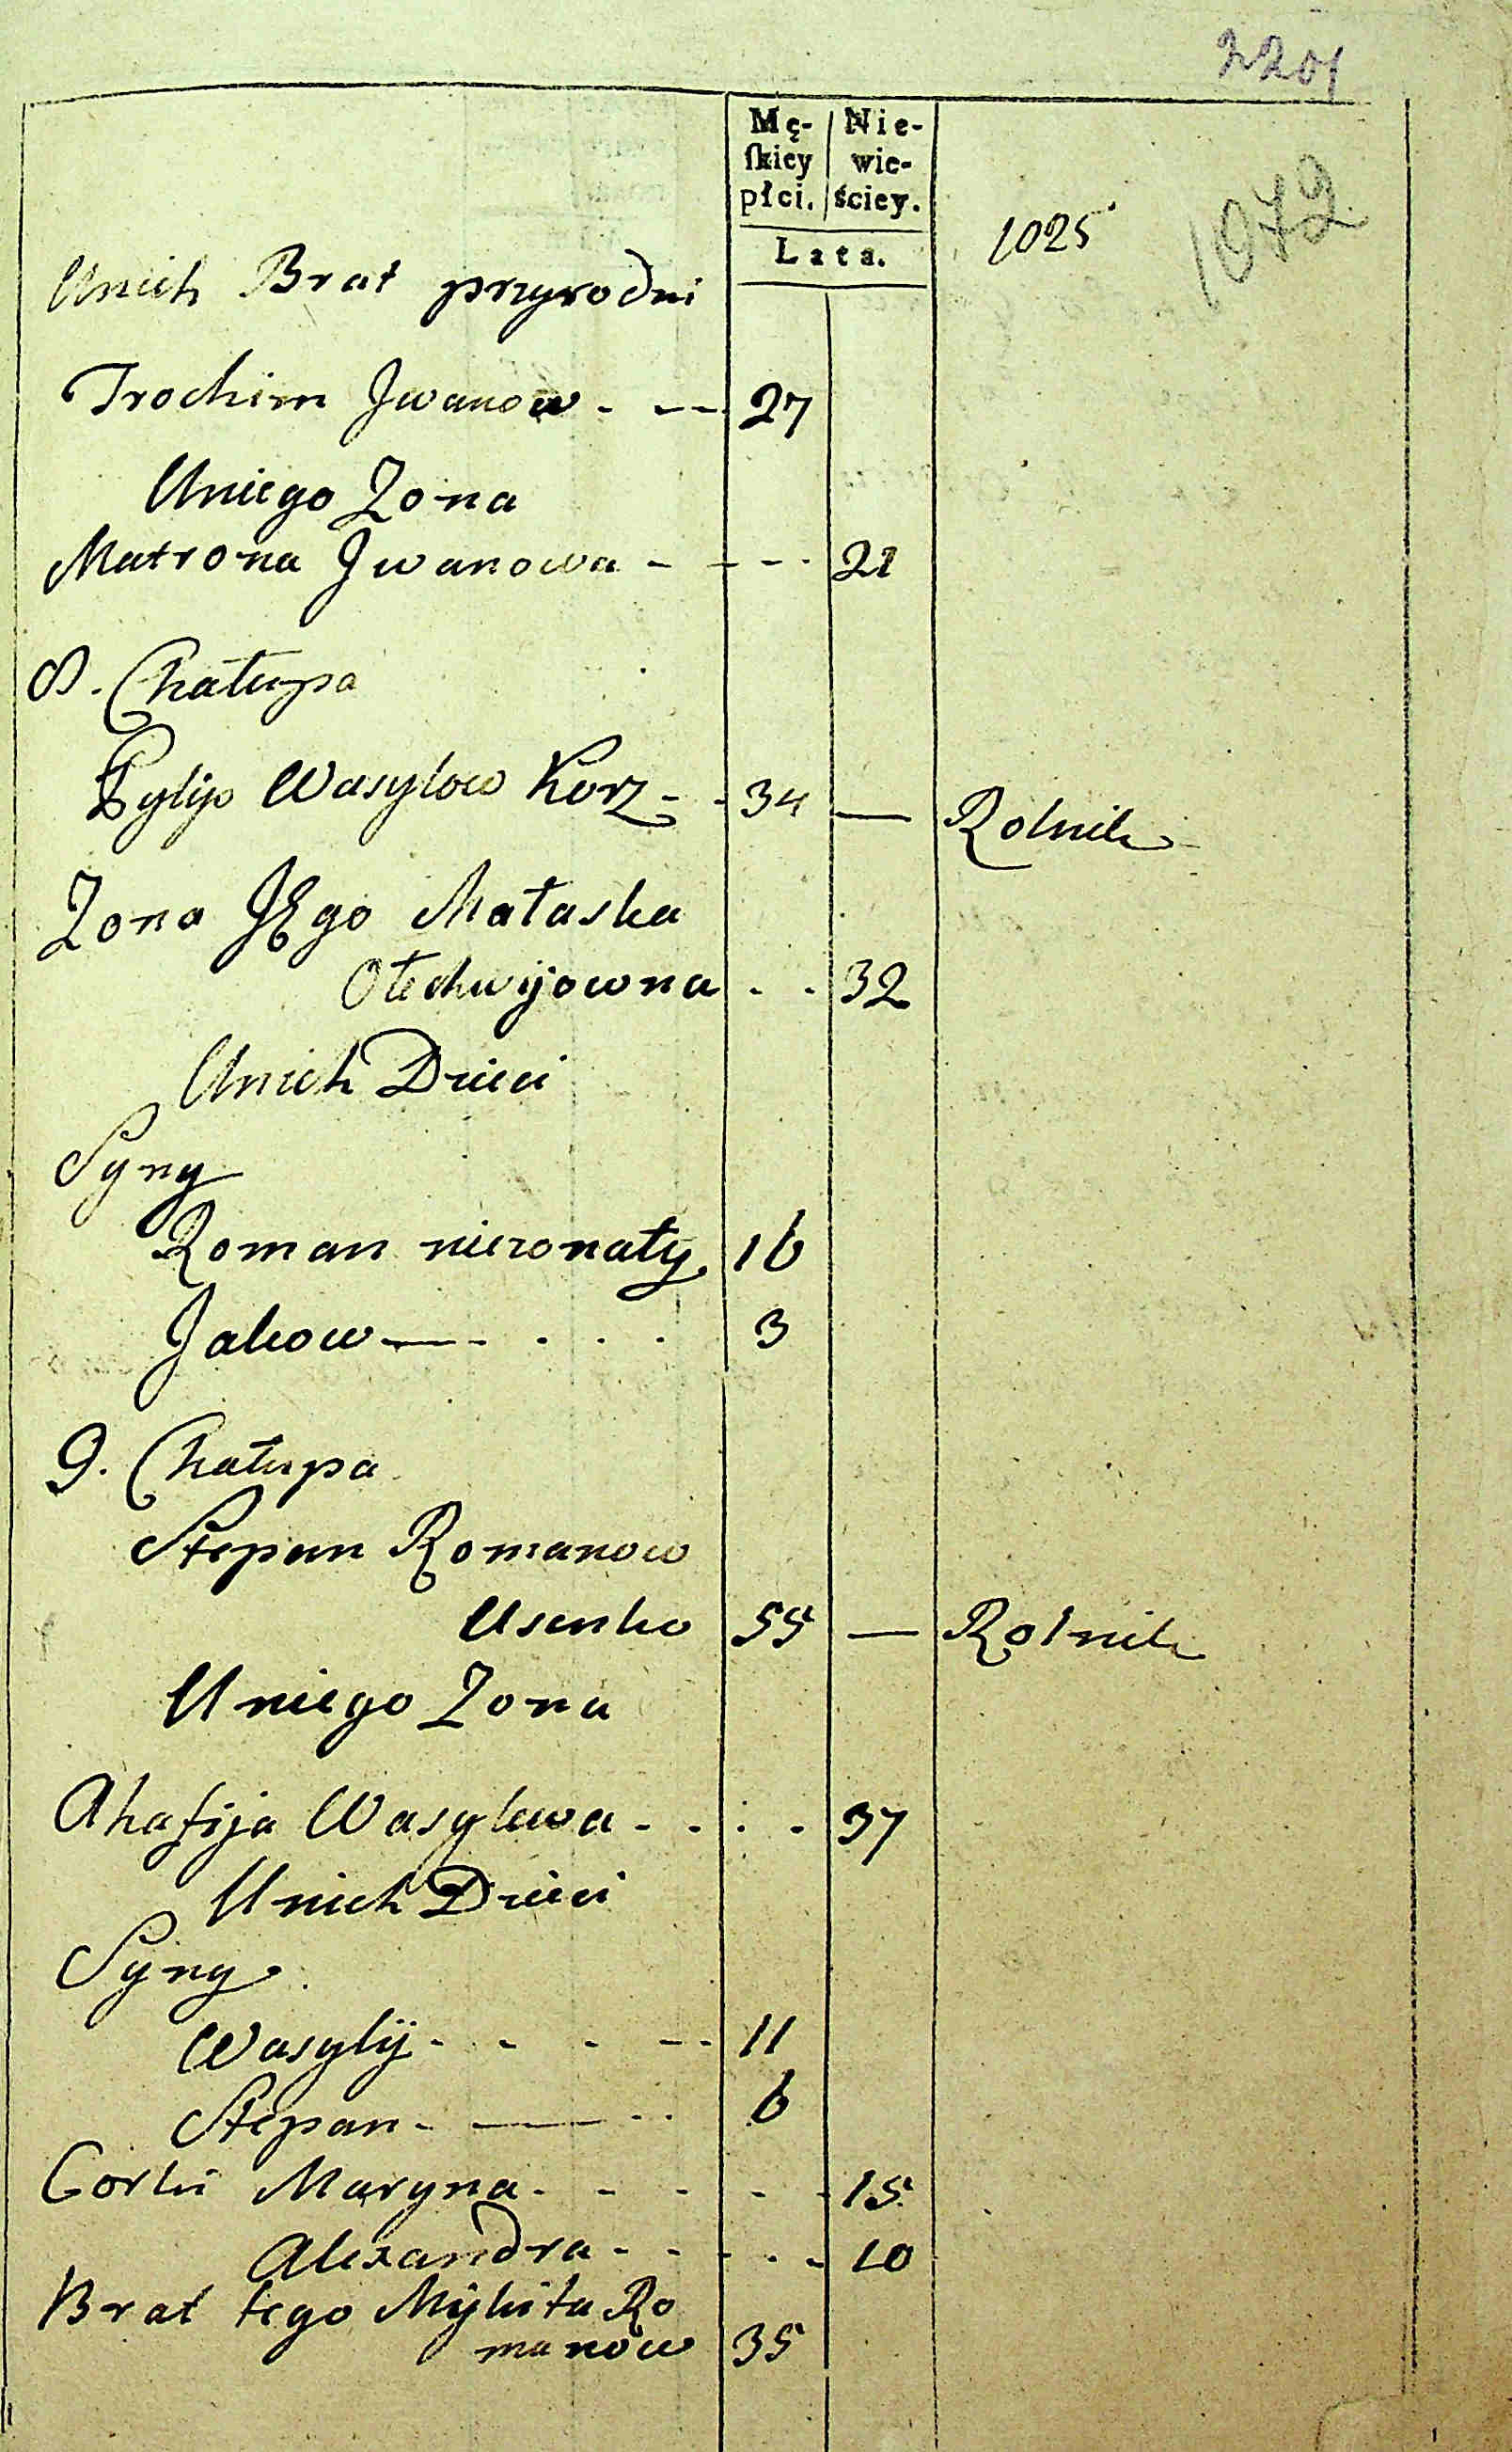 2201
Mę- Nie-
ſkiey wie-
płci. ściey.
Lata.
1025 1072
Unich Brat przyrodni
Trochim Jwanow - -- 27
Uniego Zona
Matrona Jwanowa - - - - 21
8. Chałupa
Pylyp Wasylow Korz - - 34 — Rolnik
Zona JEgo Małaska
Ołechwijowna - - 32
Unich Dzieci
Syny
Roman niezonaty 16
Jakow — - . . . 3
9. Chałupa
Stepan Romanow
Usenko 55 — Rolnik
Uniego Zona
Ahafija Wasylewa - - - - 37
Unich Dzieci
Syny
Wasylij - - - -- 11
Stepan - — - - 6
Corki Maryna - - - - - 15
Alexandra - - - - - 10
Brat tego Mykita Ro
manow 35